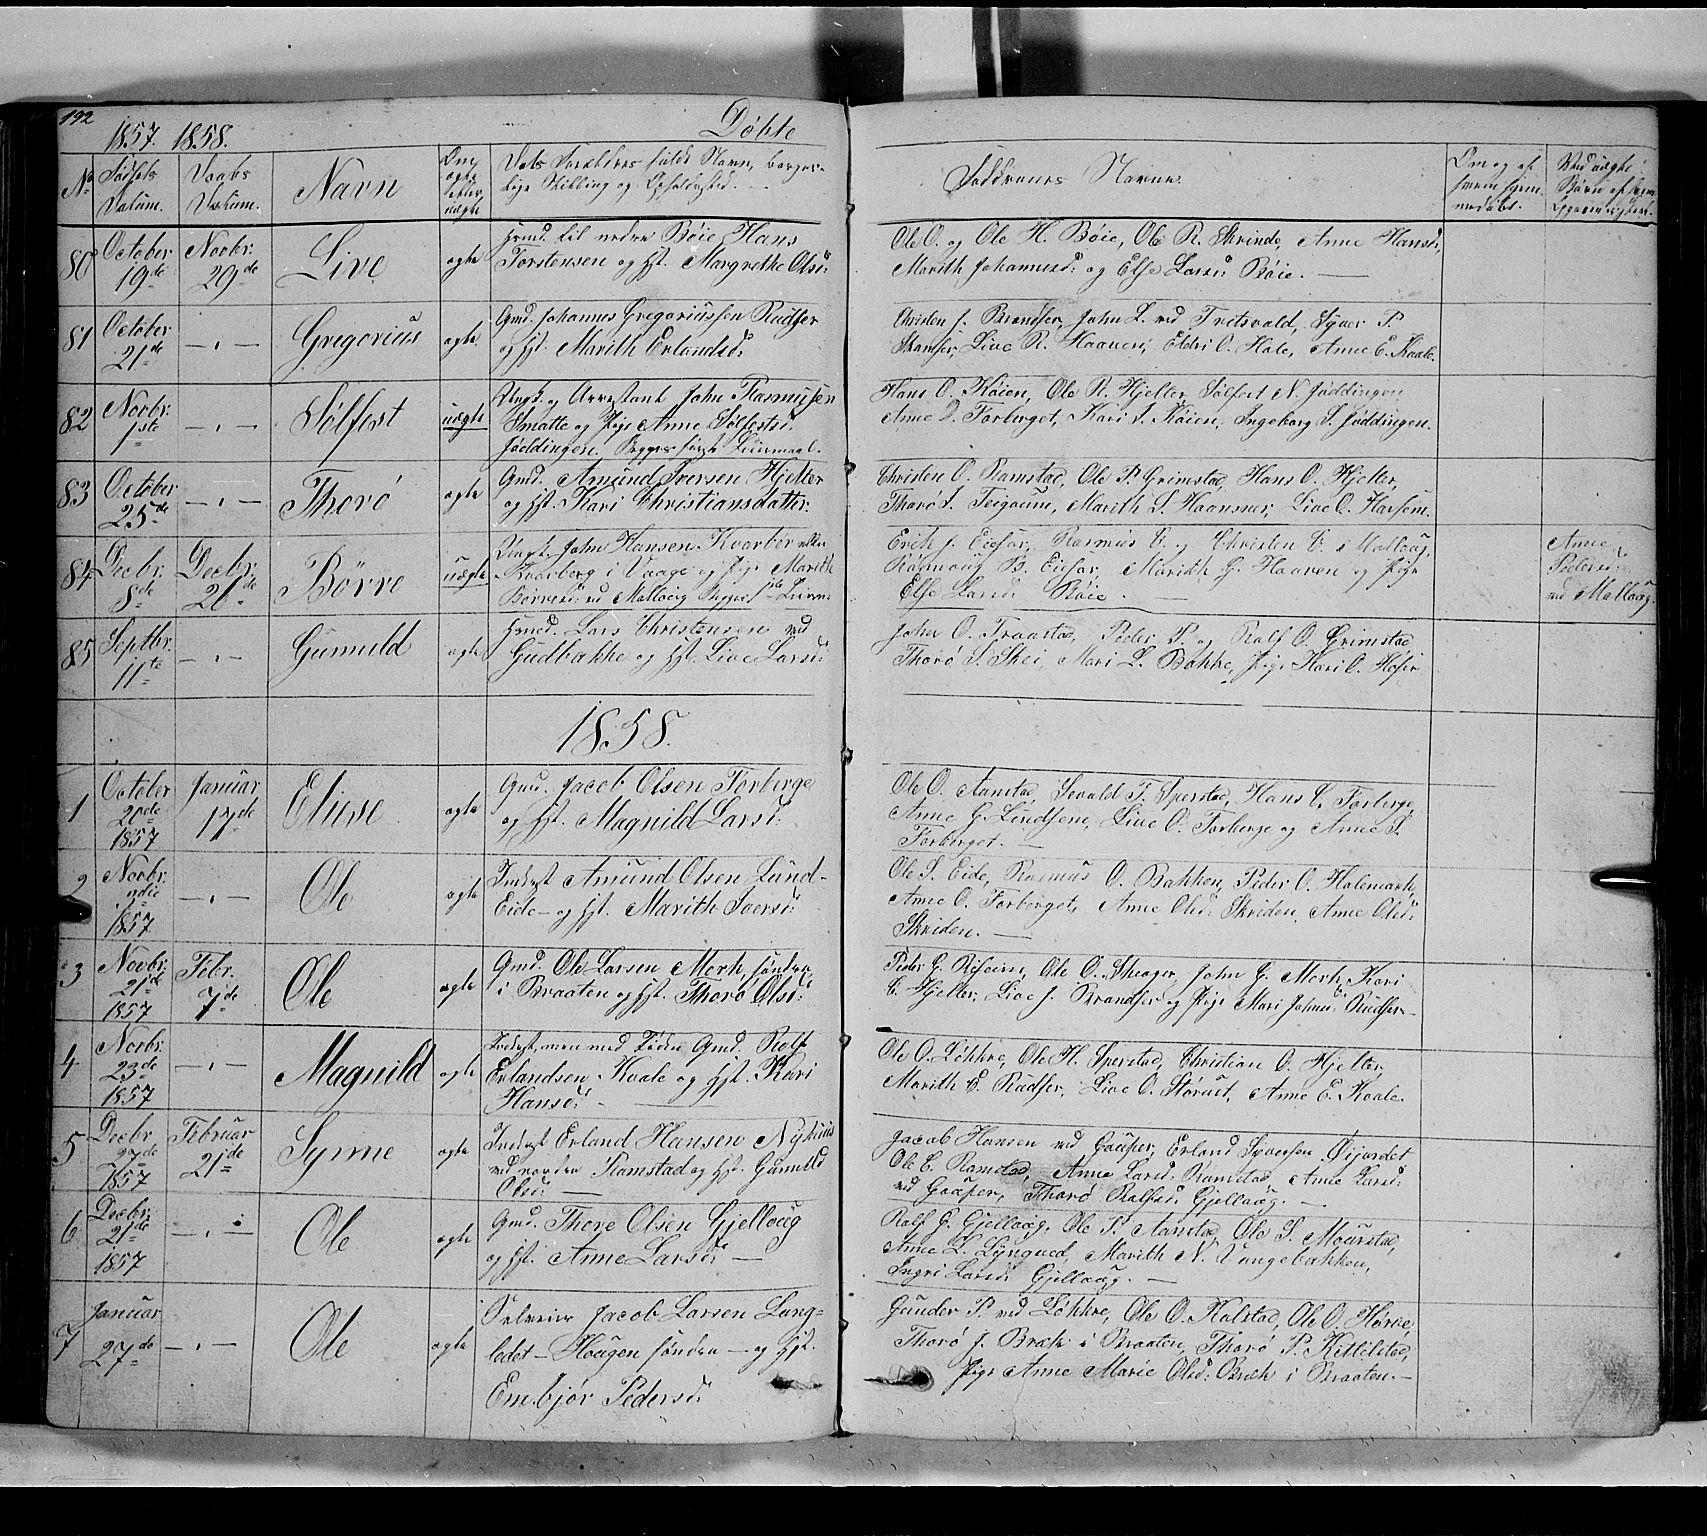 192
1857. 1858.
Døbte
No
Fødsels Datum.
Daabs Datum.
Navn
Om ægte eller uægte
Dets Forældres fulde Navn, borgerlige Stilling og Opholdssted.
Faddrenes Navne.
Om og af hvem hjemmedøbt.
Ved uægte Børn af hvem
80
October 19de
Novbr. 29de
Live
ægte
Hmd. til nedre Bøie Hans
Torstensen og Hst. Margrethe Olsd:
Ole O. og Ole H. Bøie, Ole R. Skrinde, Anne Hansd:,
Marith Johannesd: og Else Larsd: Bøie. —
81
October 21de
— „ —
Gregorius
ægte
Gmd. Johannes Gregoriussen Rudser
og Hst. Marith Erlandsd:
Christen J. Brandser, John L. ved Fritsvold, Syver P.
Live R. Haaven, Eldri O. Hole, Anne E. Kvale.
82
Novbr. 1ste
— „ —
Sølfest
uægte
Ungk. og Arrestant John Rasmusen
Smætte og Pige Anne Sølfestsd:
Jøddingen. Begges første Leiermaal.
Hans O. Køien, Ole R. Hjelter, Sølfest N. Jøddingen
Anne O. Forberget, Kari I. Køien, Ingeborg S. Jøddingen.
83
October 25de
— „ —
Thorø
ægte
Gmd. Amund Iversen Hjelter
og Hst. Kari Christiansdatter.
Christen O. Ramstad, Ole P. Grimstad, Hans O. Hjelter,
Thorø I. Teigaum, Marith L. Live O. Harsem.
84
Decbr. 8de
Decbr. 26de
Børre
uægte
Ungk. John Hansen Kvarber eller
Kvarberg i Vaage og Pige Marith
Børresd: ved Malloug Begges 1ste Leierm:
Erik J. Eidsar, Rasmus C. og Christen C. i Malloug,
B. Eidsar, Marith G. Haaven og Pige
Else Larsd: Bøie. —
Anne
Pedersd:
ved Malloug.
85
Septbr. 11te
— „ —
Gunnild
ægte
Hmd. Lars Christensen ved
Gudbakke og Hst. Live Larsd:
John O. Traastad, Peder P. og Rolf O. Grimstad
Thorø S. Skei, Mari L. Bakke, Pige Kari O.
1858.
1
October 20de 1857
Januar 17de
Eliese
ægte
Gmd. Jacob Olsen Forberge
og Hst. Magnild Larsd:
Ole O. Aanstad, Sevald T. Sperstad, Hans C. Forberge,
Anne G. Lindsem, Live O. Forberge og Anne S.
Forberget. —
2
Novbr. 1857
— „ —
Ole
ægte
Inderst Amund Olsen Lund-
Eide — og Hst. Marith Iversd:
Ole S. Eide, Rasmus O. Bakken, Peder O. Holemark,
Anne O. Forberget, Anne Olsd: Skriden, Anne Olsd:
Skriden. —
3
Novbr. 21de 1857
Febr. 7de
Ole
ægte
Gmd. Ole Larsen Mork, søndre
i Braaten og Hst. Thorø Olsd:
Peder G. Ole O. Skeager, John G. Mork, Kari
C. Hjelter, Live J. Brandser og Pige Mari Rudser. —
4
Novbr. 23de 1857
— „ —
Magnild
ægte
Inderst, men med Føderaad Gmd. Rolf
Erlandsen Kvale og Hst. Kari
Hansd: —
Ole O. Løkkre, Ole H. Sperstad, Christian O. Hjelter,
Marith E. Rudser, Live O. Storust, Anne E. Kvale.
5
Decbr. 27de 1857
Februar 21de
Synne
ægte
Inderst Erland Hansen Nyhuus
ved nordre Ramstad og Hst. Gunnild
Olsd: —
Jacob Hansen ved Gaaper, Erland Iversen Øijordet
Ole C. Ramstad, Anne Larsd: Ramstad, Anne Larsd:
ved Gaaper, Thorø Rolfsd: Gjellaug. —
6
Decbr. 21de 1857
— „ —
Ole
ægte
Gmd. Thore Olsen Gjellaug
og Hst. Anne Larsd: —
Rolf G. Gjellaug, Ole P. Aanstad, Ole S. Mourstad,
Anne L. Lyngved, Marith N. Vangebakken,
Ingri Larsd: Gjellaug. —
7
Januar 27de
— „ —
Ole
ægte
Selveier Jacob Larsen Lang-
ledet — Haugen søndre — og Hst.
Embjør Pedersd:
Gunder P. ved Løkkre, Ole O. Kolstad, Ole O. Horve,
Thorø J. Bræk i Braaten, Thorø P. Kittilstad,
Pige Anne Marie Olsd: Bræk i Braaten. —